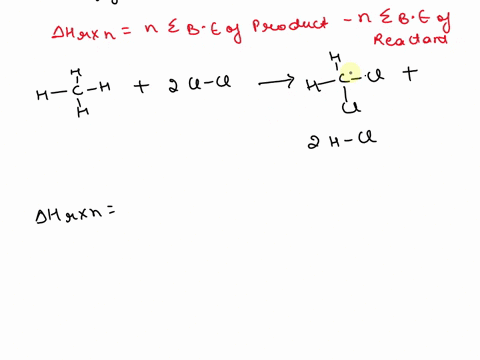 ΔHrxn = n Σ B·E of Product - n Σ B·E of
Reactant
H
H-C-H + 2 Cl-Cl → H-C-Cl +
H
H
Cl
2 H-Cl
ΔHrxn =